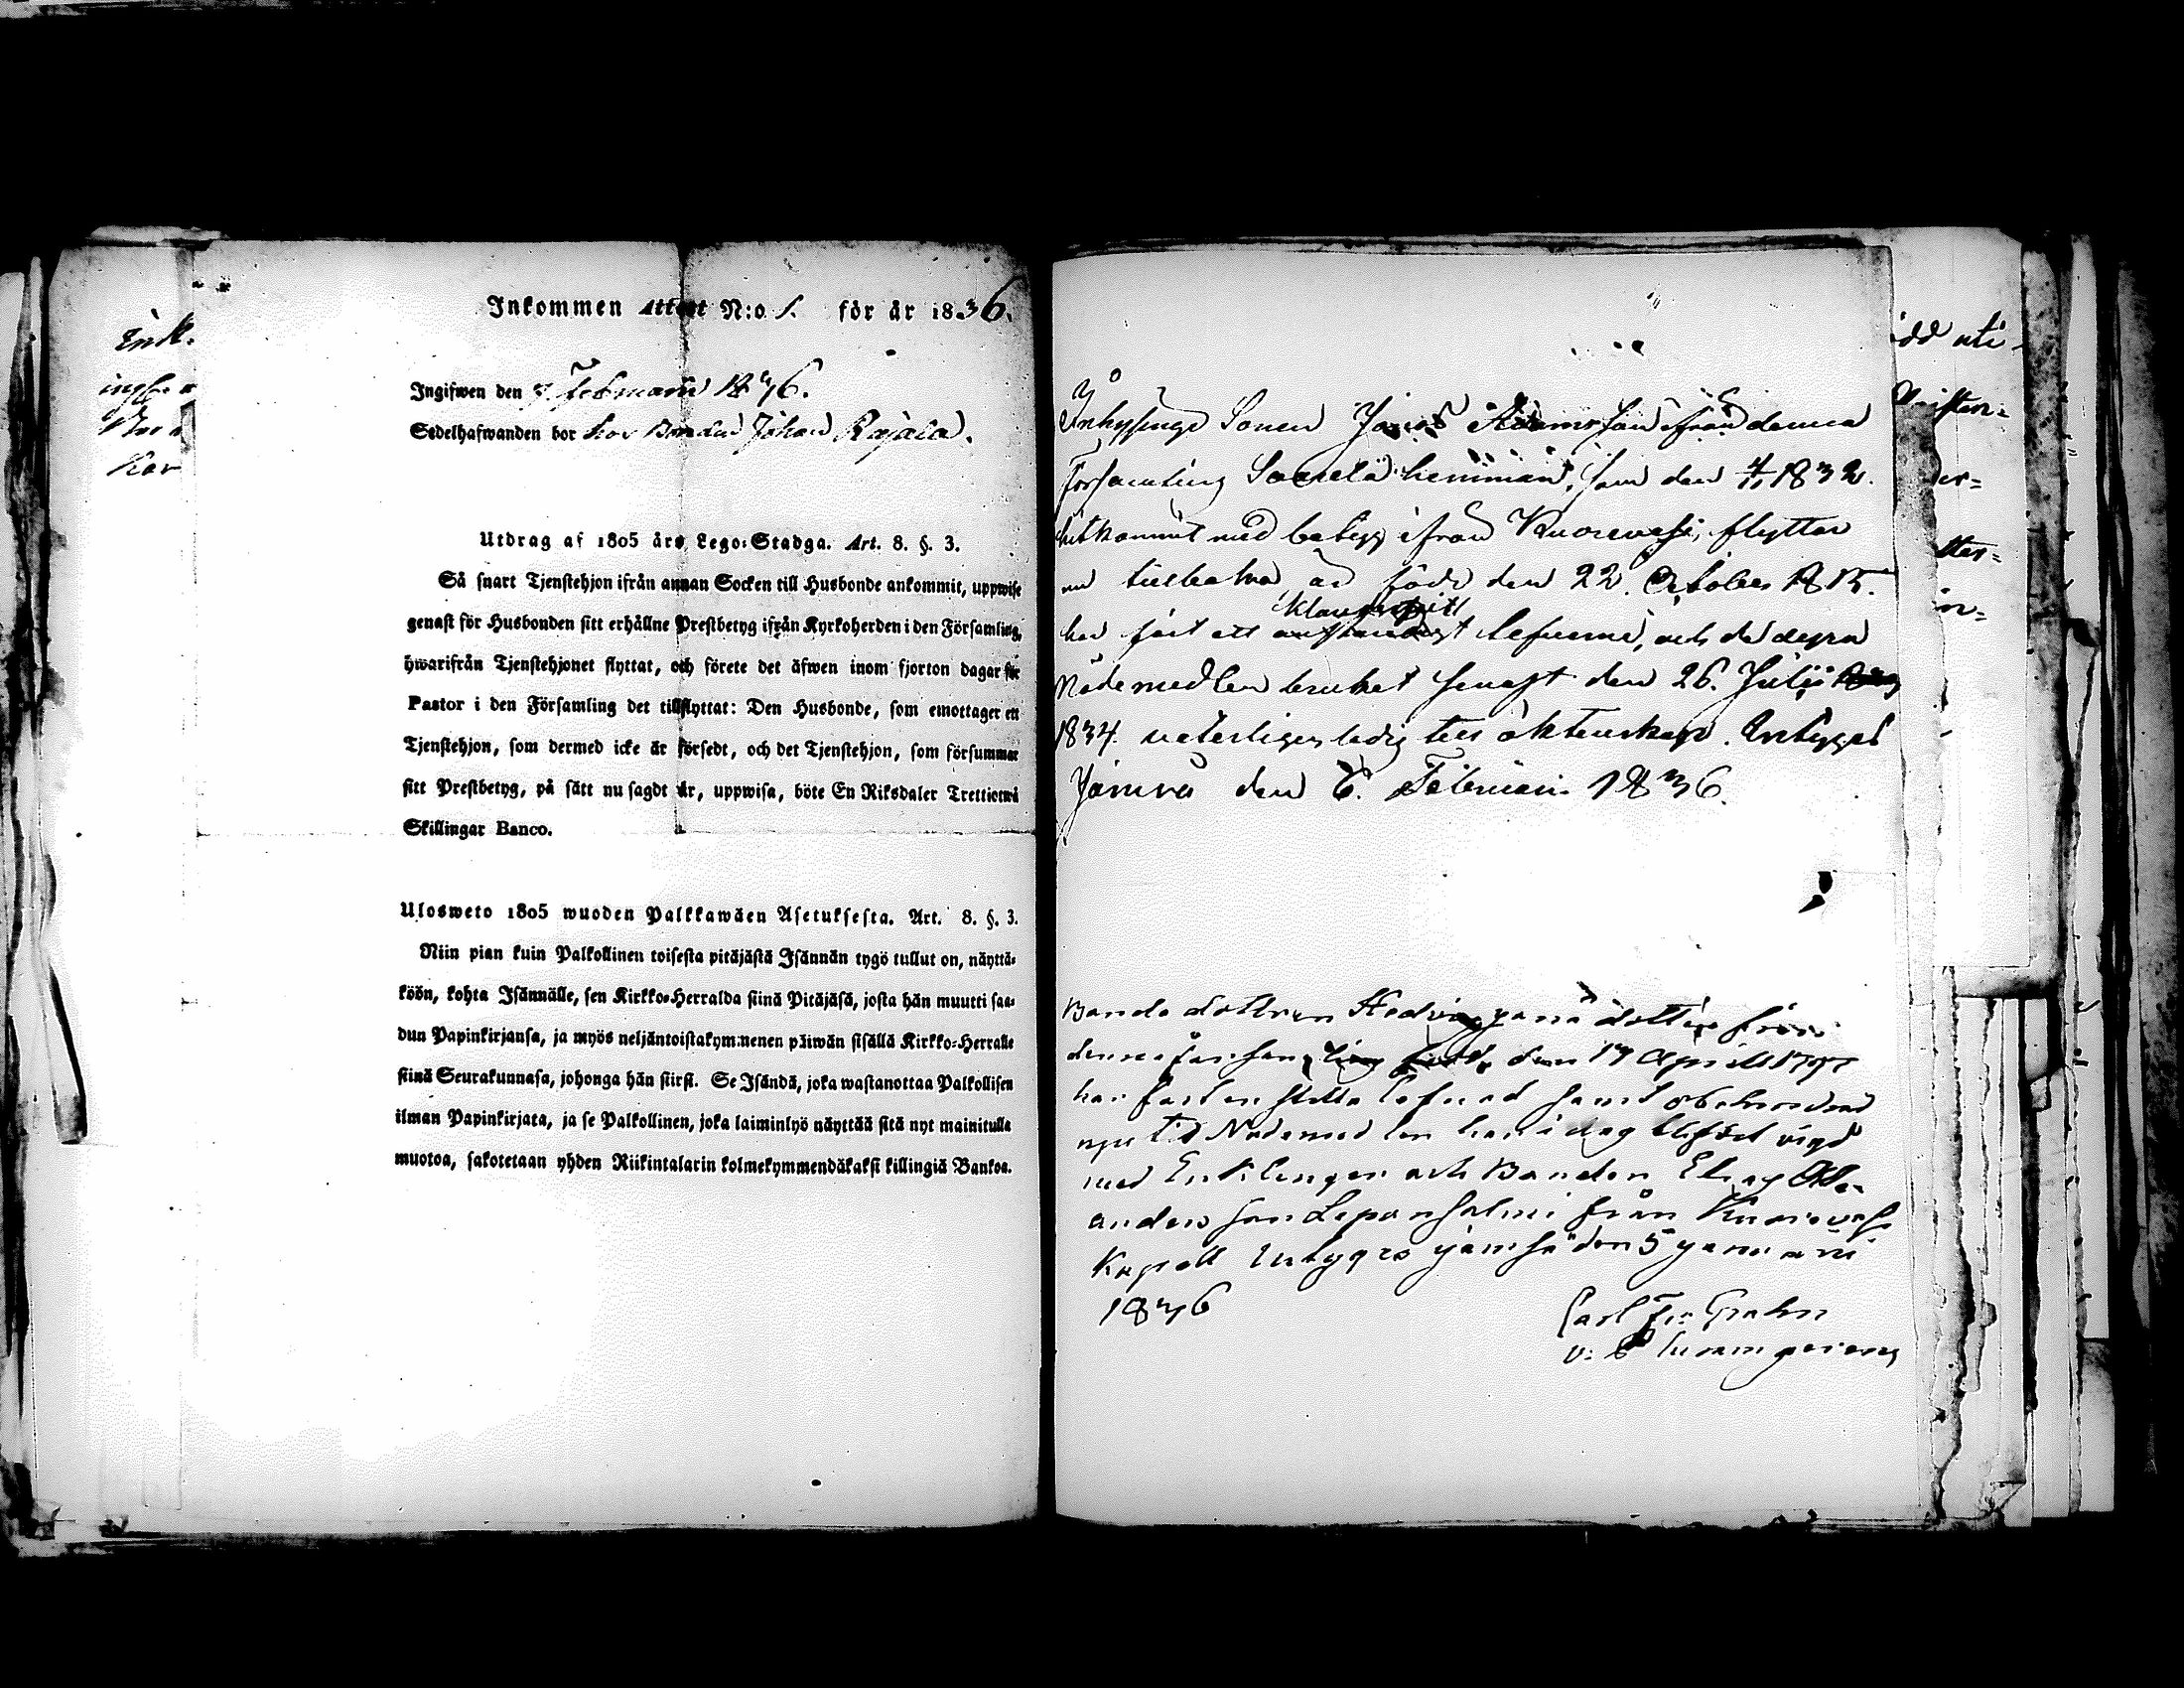 Enk.
Inkommen Attest N:o 1. för år 1836.
Ingifwen den 7. Februarii 1836.
Sedelhafwanden bor hos Bonden Johan Rajala.
Utdrag af 1805 års Lego-Stadga. Art. 8. §. 3.
Så snart Tjenstehjon ifrån annan Socken till Husbonde ankommit, uppwise
genast för Husbonden sitt erhållne Prestbetyg ifrån Kyrkoherden i den Församling,
hwarifrån Tjenstehjonet flyttat, och förete det äfwen inom fjorton dagar för
Pastor i den Församling det tillflyttat: Den Husbonde, som emottager ett
Tjenstehjon, som dermed icke är försedt, och det Tjenstehjon, som försummar
sitt Prestbetyg, på sätt nu sagdt är, uppwisa, böte En Riksdaler Trettiotwå
Skillingar Banco.
Ulosweto 1805 wuoden Palkkawäen Asetuksesta. Art. 8. §. 3.
Niin pian kuin Palkollinen toisesta pitäjästä Isännän tygö tullut on, näyttä-
köön, kohta Isännälle, sen Kirkko-Herralda siinä Pitäjäsä, josta hän muutti saa-
dun Papinkirjansa, ja myös neljäntoistakymmenen päiwän sisällä Kirkko-Herralle
siinä Seurakunnasa, johonga hän siirsi. Se Isändä, joka wastanottaa Palkollisen
ilman Papinkirjata, ja se Palkollinen, joka laiminlyö näyttää sitä nyt mainitulla
muotoa, sakotetaan yhden Riikintalarin kolmekymmendäkaksi killingiä Bankoa.
Inhysinge Sonen Adamsson ifrån denna
Församling hemman, som den 1832.
hitkommit med betyg ifrån Kuorevesi, flyttar
nu tillbaka är född den 22. October 1815.
har fört ett klanderfritt lefverne, och då degra
Nådemedlen brukat senast den 26. Julii
1834. veterligen ledig till äktenskap. Intygas
Jämsä den 6. Februarii 1836.
Bonde dottren Hedvig dotter från
denna församling född den 17 April 1797
har fört en stilla lefnad samt
Nådemedlen har i dag blifvit vigd
med Enklingen och Bonden Elias Alex-
andersson Lepansalmi från Kuorevesi
Kapell Intygas Jämsä den 5 Januarii
1836
Carl Fr: Grahn